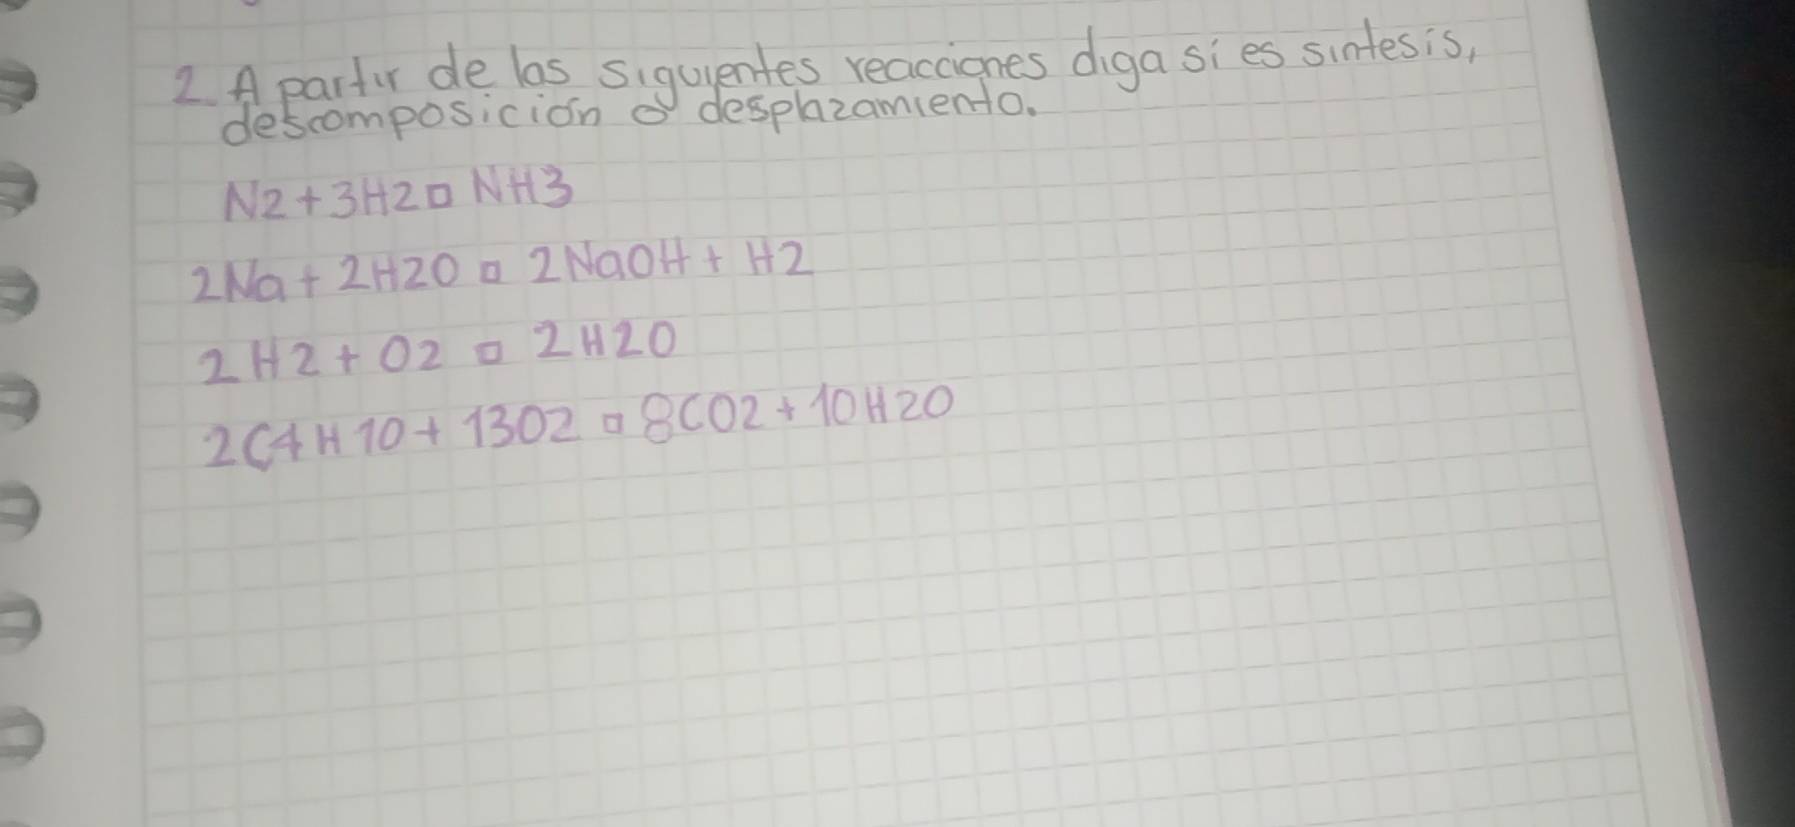 2. A partir de las siguientes reacciones diga si es sintesis,
descomposición o desplazamiento.
N2+3H2□ NH3
2Na+2H2O □ 2NaOH+H2
2H2+O2 □ 2H2O
2C4H10+13O2 □ 8CO2+10H2O